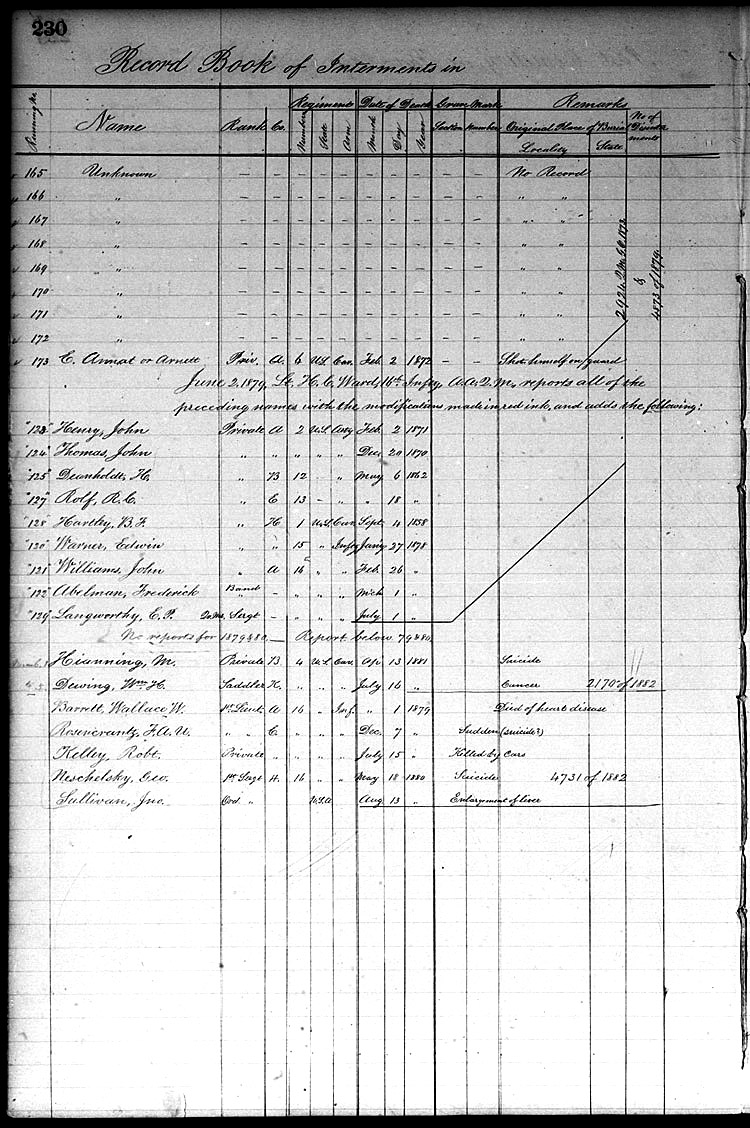 230
Record Book of Interments in
Running No. Name Rank Co. Regiment Date of Death Grave Mark Remarks
Number State Arm Month Day Year Section Number Original Place of Burial No of Disinterments
Locality State
165 Unknown – – – – – – – – – – No Record
166 " – – – – – – – – – – " "
167 " – – – – – – – – – – " "
168 " – – – – – – – – – – " "
169 " – – – – – – – – – – " "
170 " – – – – – – – – – – " "
171 " – – – – – – – – – – " "
172 " – – – – – – – – – – " "
2924. Q.M.G.O. 1873
&
4873 of 1879.
173 C. Annat or Arnett Priv. A. 6 U.S. Cav. Feb. 2 1872 – – Shot himself on guard
June 2, 1879, Lt. H. C. Ward, 16th Infty, A.A.Q.M., reports all of the
preceding names with the modifications made in red ink, and adds the following:
"123" Henry, John Private A 2 U.S. Cavy Feb. 2 1871
"124" Thomas, John " " " " " Dec. 20 1870
"125" Deanholdt, H. " B 12 " May 6 1862
"127" Rolf, R. C. " E 13 – " " 18 "
"128" Hartley, B. F. " H 1 U.S. Cav. Sept. 4 1858
"120" Warner, Edwin " " 15 " Infty Jany 27 1878
"121" Williams, John " A 16 " " Feb. 26 "
"122" Abelman, Frederick Band – " " " Mch 1 "
"129" Langworthy, E. P. Qr. Mr. Sergt – " " " July 1 "
No reports for 1879 & 80. — Report below 79 & 80.
Hianning, M. Private B. 4 U.S. Cav. Apr. 13 1881 Suicide
Dewing, Wm H. Saddler K. " " " July 16 " Cancer 2170 of 1882
Barrett, Wallace W. 1st Lieut. A 16 " Inf. " 1 1879 Died of heart disease
Rosencrantz, F. A. U. " " C " " " Dec. 7 " Sudden (suicide?)
Kelley, Robt. Private " " " July 15 " Killed by Cars
Neschelsky, Geo. 1st Sergt H. 16 " " May 18 1880 Suicide 4731 of 1882
Sullivan, Jno. Ord. " U.S.A. Aug 13 " Enlargment of liver